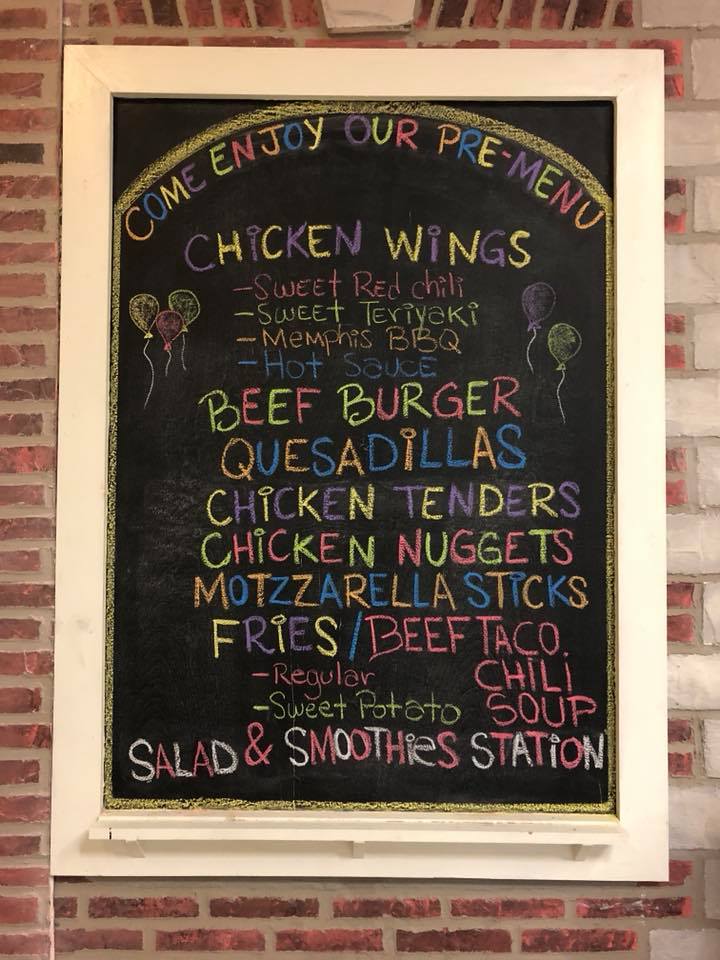 COME ENJOY OUR PRE-MENU
CHiCKEN WiNGS
-Sweet Red chili
-Sweet Teriyaki
-Memphis BBQ
-Hot SauCE
BEEF BURGER
QUESADiLLAS
CHiCKEN TENDERS
CHiCKEN NUGGETS
MOTZZARELLA STiCKS
FRiES/BEEF TACO.
-Regular CHiLi
-Sweet Potato SOUP
SALAD & SMOOTHiES STATiON